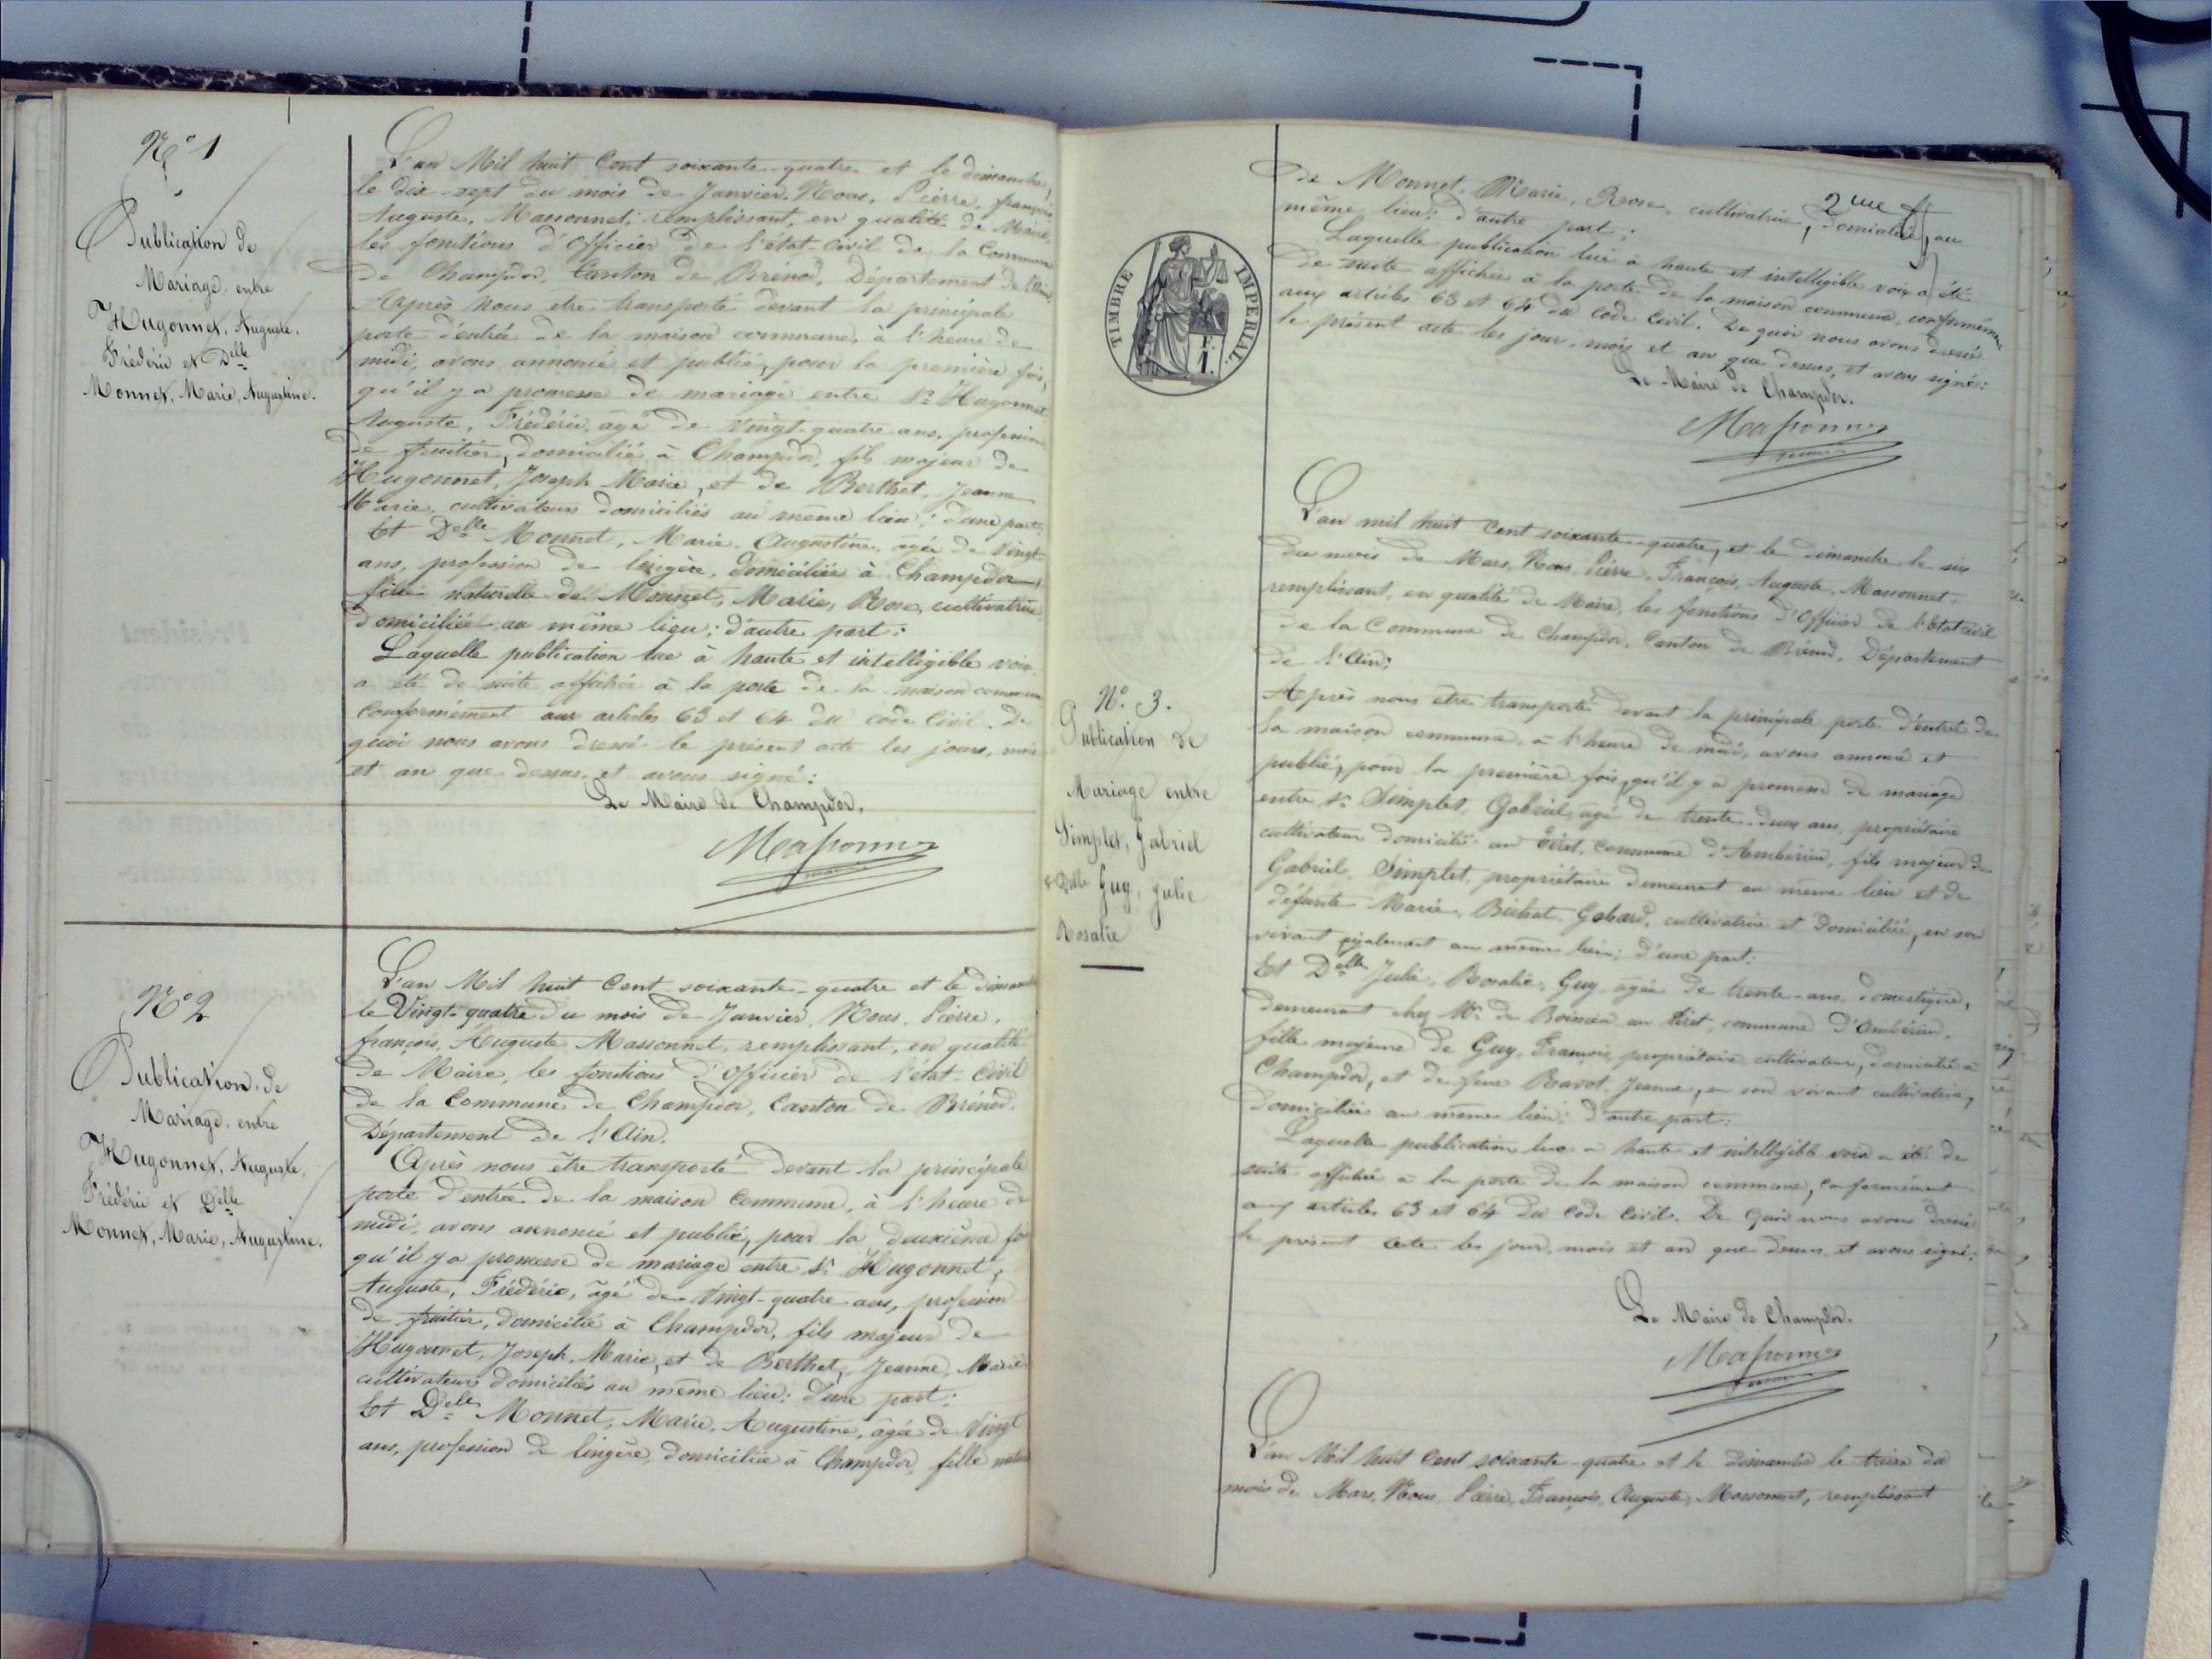 N° 1
Publication de
Mariage entre
Hugonnet, Auguste,
Frédéric et Delle
Monnet, Marie, Augustine.
L'an Mil huit Cent soixante-quatre et le dimanche,
le dix-sept du mois de Janvier, Nous, Pierre, françois,
Auguste, Massonnet, remplissant, en qualité de Maire,
les fonctions d'Officier de l'état-civil de la Commune
de Champdor, Canton de Brénod, Département de l'Ain,
Après nous etre transporté devant la principale
porte d'entrée de la maison commune, à l'heure de
midi, avons annoncé et publié, pour la première fois,
qu'il y a promesse de mariage entre Sr Hugonnet
Auguste, Frédéric, âgé de vingt-quatre ans, profession
de fruitier, domicilié à Champdor, fils majeur de
Hugonnet, Joseph Marie, et de Berthet, Jeanne
Marie, cultivateurs domiciliés au même lieu; d'une part.
Et Delle Monnet, Marie, Augustine, agée de Vingt
ans, profession de lingère, domiciliée à Champdor
fille naturelle de Monnet, Marie, Rose, cultivatrice
domiciliée au même lieu; d'autre part:
Laquelle publication lue à haute et intelligible voix
a été de suite affichée à la porte de la maison commune
conformément aux articles 63 et 64 du code Civil. De
quoi nous avons dressé le présent acte les jours, mois
et an que dessus, et avons signé:
Le Maire de Champdor.
Massonnet
N° 2
Publication de
Mariage entre
Hugonnet, Auguste,
Frédéric et Delle
Monnet, Marie, Augustine.
L'an Mil huit Cent soixante-quatre et le dimanche
le Vingt-quatre du mois de Janvier, Nous, Pierre,
françois, Auguste Massonnet, remplissant, en qualité
de Maire, les fonctions d'Officier de l'état-Civil
de la Commune de Champdor, Canton de Brénod,
Département de l'Ain.
Après nous être transporté devant la principale
porte d'entrée de la maison Commune, à l'heure de
midi, avons annoncé et publié, pour la deuxième fois
qu'il y a promesse de mariage entre Sr Hugonnet,
Auguste, Frédéric, âgé de Vingt-quatre ans, profession
de fruitier, domicilié à Champdor, fils majeur de
Hugonnet, Joseph, Marie, et de Berthet, Jeanne, Marie
cultivateurs domiciliés au même lieu: d'une part:
Et Delle Monnet, Marie, Augustine, âgée de Vingt
ans, profession de lingère, domiciliée à Champdor, fille
2me
de Monnet, Marie, Rose, cultivatrice, domiciliée, au
même lieu; d'autre part;
Laquelle publication lue à haute et intelligible voix a été
de suite affichée à la porte de la maison commune, conformément
aux articles 63 et 64 du Code Civil. De quoi nous avons dressé
le présent acte les jour, mois et an que dessus, et avons signé:
Le Maire de Champdor.
Massonnet
TIMBRE IMPÉRIAL.
N° 3.
Publication de
Mariage entre
Simplet, Gabriel
& Delle Guy, Julie
Rosalie
L'an mil huit Cent soixante-quatre, et le dimanche le six
du mois de Mars, Nous Pierre, François, Auguste, Massonnet,
remplissant, en qualité de Maire, les fonctions d'Officier de l'Etat Civil
de la Commune de Champdor, Canton de Brénod, Département
de l'Ain;
Après nous être transporté devant la principale porte d'entrée de
la maison commune, à l'heure de midi, avons annoncé et
publié, pour la première fois, qu'il y a promesse de mariage
entre Sr Simplet, Gabriel, agé de trente-deux ans, propriétaire
cultivateur domicilié au Tiret, commune d'Ambérieu, fils majeur de
Gabriel, Simplet, propriétaire demeurant au même lieu et de
défunte Marie, Bichat, cultivatrice et domiciliée, en son
vivant également au même lieu; d'une part:
Et Delle Julie, Rosalie, Guy, agée de trente-ans, domestique,
demeurant chez Mr de au Tiret, commune d'Ambérieu,
fille majeure de Guy, François, propriétaire cultivateur, domicilié à
Champdor, et de feue Ravot, Jeanne, en son vivant cultivatrice,
domiciliée au même lieu; d'autre part:
Laquelle publication lue à haute et intelligible voix a été de
suite affichée à la porte de la maison commune, conformément
aux articles 63 et 64 du Code Civil. De quoi nous avons dressé
le présent acte les jour, mois et an que dessus, et avons signé:
Le Maire de Champdor.
Massonnet
L'an Mil huit Cent soixante-quatre et le dimanche le treize du
mois de Mars, Nous, Pierre, François, Auguste, Massonnet, remplissant